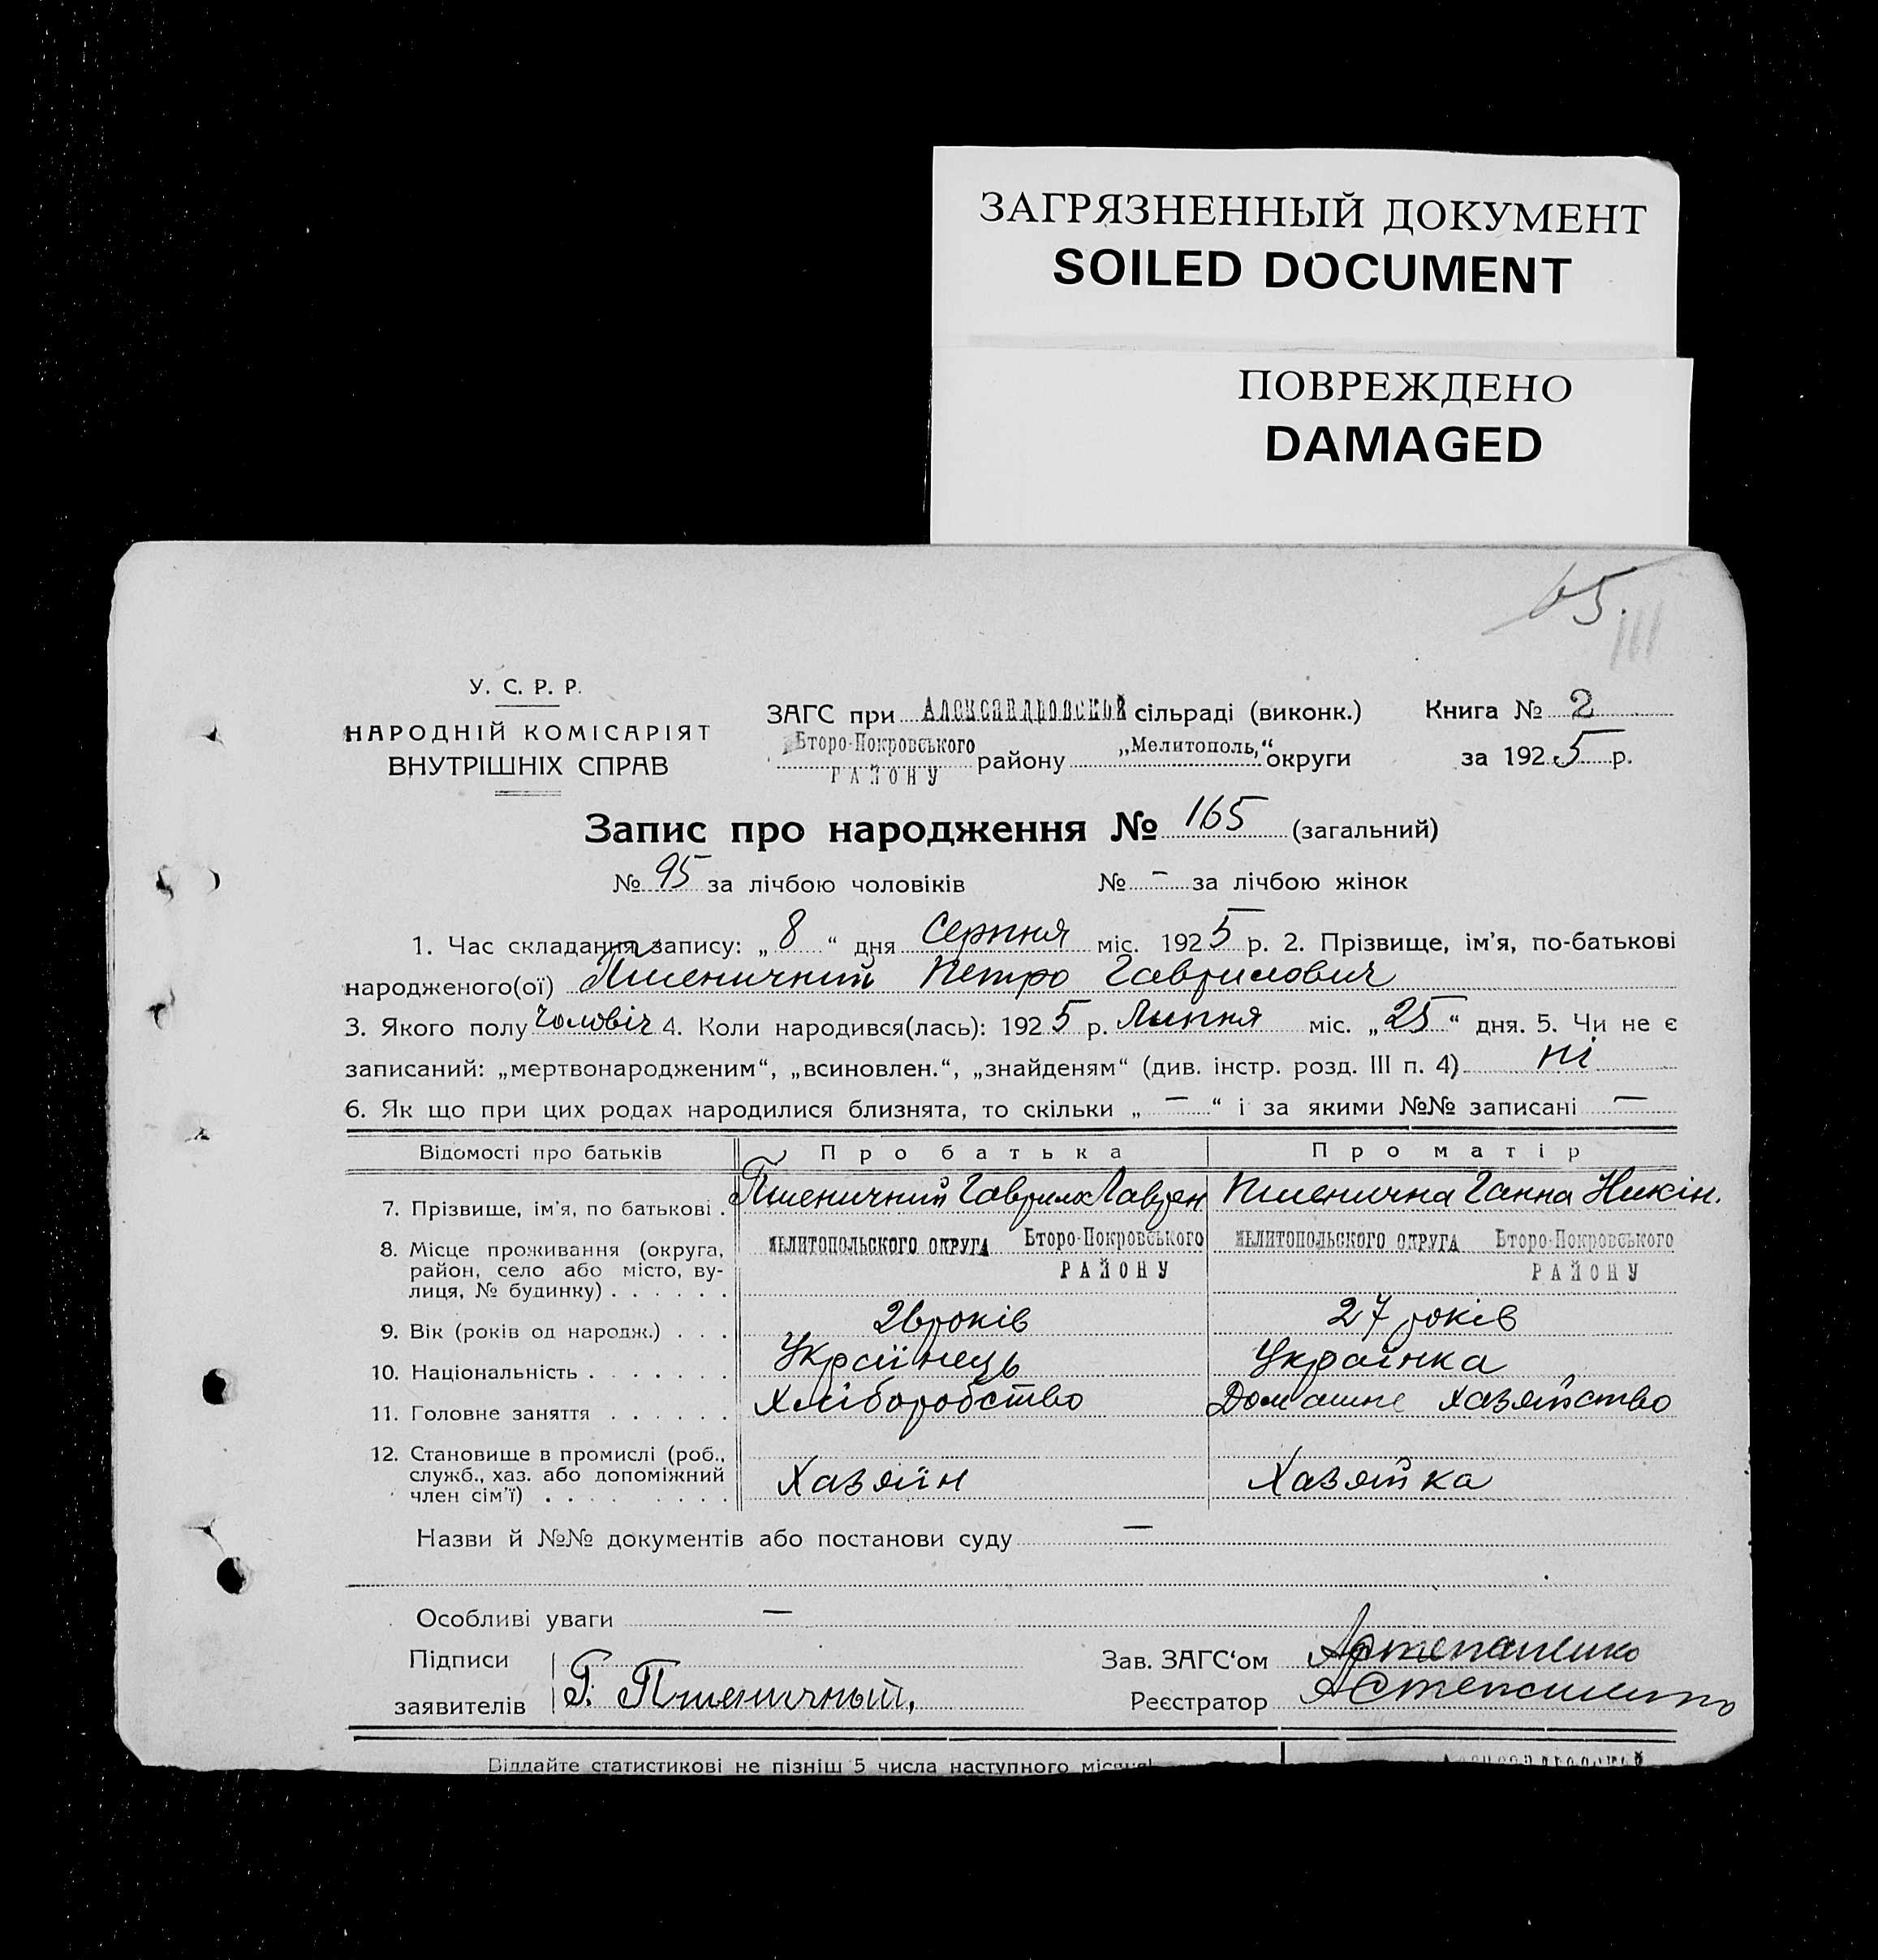 ЗАГРЯЗНЕННЫЙ ДОКУМЕНТ
SOILED DOCUMENT
ПОВРЕЖДЕНО
DAMAGED
65.
III
У. С. Р. Р.
НАРОДНІЙ КОМІСАРІЯТ
ВНУТРІШНІХ СПРАВ
ЗАГС при Александровской сільраді (виконк.) Книга № 2
Второ-Покровського РАЙОНУ району „Мелитополь,“ округи за 1925 р.
Запис про народження № 165 (загальний)
№ 95 за лічбою чоловіків № — за лічбою жінок
1. Час складання запису: „8“ дня Серпня міс. 1925 р. 2. Прізвище, ім'я, по-батькові
народженого(ої) Пшеничний Петро Гаврилович
3. Якого полу Чоловіч 4. Коли народився(лась): 1925 р. Липня міс. „25“ дня. 5. Чи не є
записаний: „мертвонародженим“, „всиновлен.“, „знайденям“ (див. інстр. розд. III п. 4) ні
6. Як що при цих родах народилися близнята, то скільки „—“ і за якими №№ записані —
Відомості про батьків Про батька Про матір
7. Прізвище, ім'я, по батькові . Пшеничний Гаврило Лаврен Пшенична Ганна Никін.
8. Місце проживання (округа, район, село або місто, вулиця, № будинку) . . . . . . МЕЛИТОПОЛЬСКОГО ОКРУГА Второ-Покровського РАЙОНУ МЕЛИТОПОЛЬСКОГО ОКРУГА Второ-Покровського РАЙОНУ
9. Вік (років од народж.) . . . 26 років 27 років
10. Національність . . . . . . . Українець Українка
11. Головне заняття . . . . . . Хліборобство Домашнє хазяйство
12. Становище в промислі (роб., служб., хаз. або допоміжний член сім'ї) . . . . . . . . . Хазяїн Хазяйка
Назви й №№ документів або постанови суду —
Особливі уваги —
Підписи
заявителів Г. Пшеничный.
Зав. ЗАГС'ом
Реєстратор
Віддайте статистикові не пізніш 5 числа наступного місяця!
Александровской